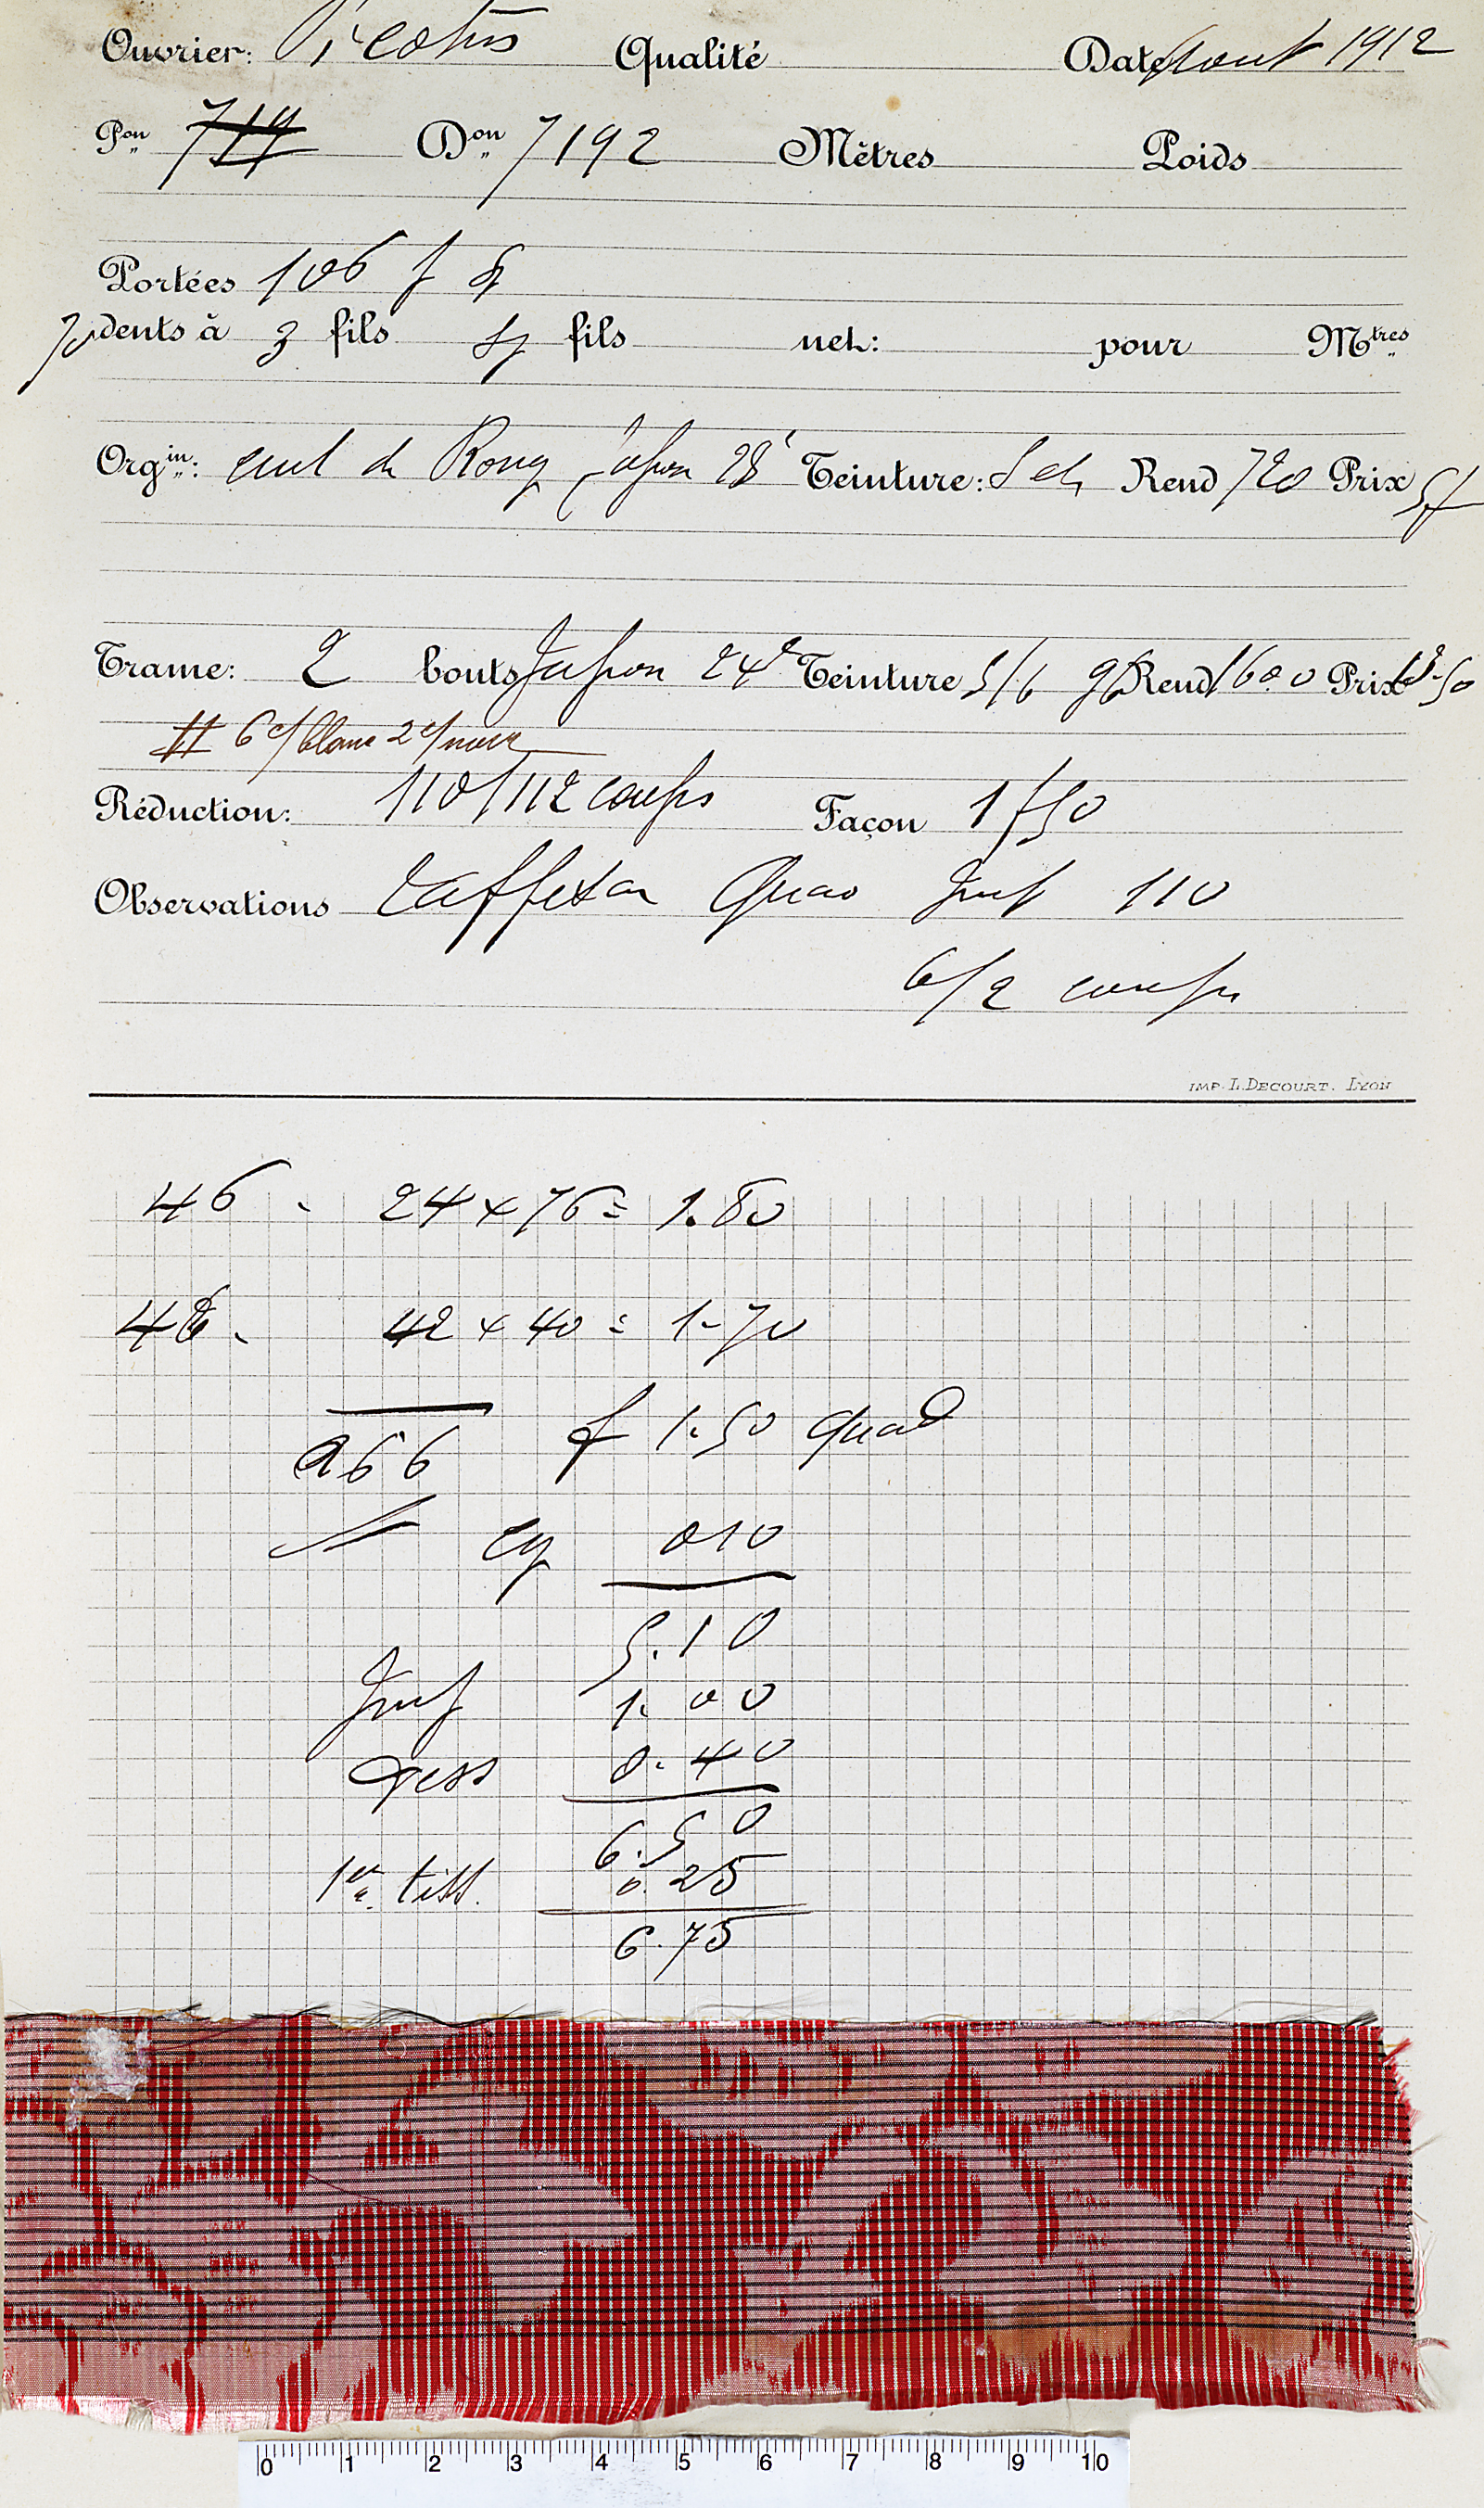 Ouvrier: Qualité Date Aout 1912
Pon 719 Don 7192 Mètres Poids
Portées 106 f
70 dents à 3 fils fils net: pour Mtres
Orgin: cuit de Japon 28 Teinture: Rend 720 Prix 5f
Trame: 2 bouts Japon 24 Teinture 5/6 Rend 1600 Prix
6 c/ blanc 2 c/ noir
Réduction: 110/112 coups Façon 1f50
Observations taffetas Quad Imp 110
6/2 coups
IMP. L. DECOURT. LYON
46 - 24 x 76 = 1.80
46 - 42 x 40 = 1-70
a 66 f 1.50 quad
010
5.10
Imp 1.00
0.40
6.50
1er tiss. 0.25
6.75
0 1 2 3 4 5 6 7 8 9 10